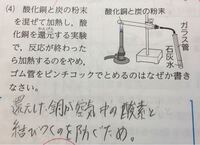 (4) 酸化銅と炭の粉末
を混ぜて加熱し、酸
化銅を還元する実験
かんげん
で、反応が終わった
ら加熱するのをやめ,
ゴム管をピンチコックでとめるのはなぜか書き
なさい。
酸化銅と炭の粉末
ガラス管
石灰水
還元した銅が空気中の酸素と
結びつくのを防ぐため。